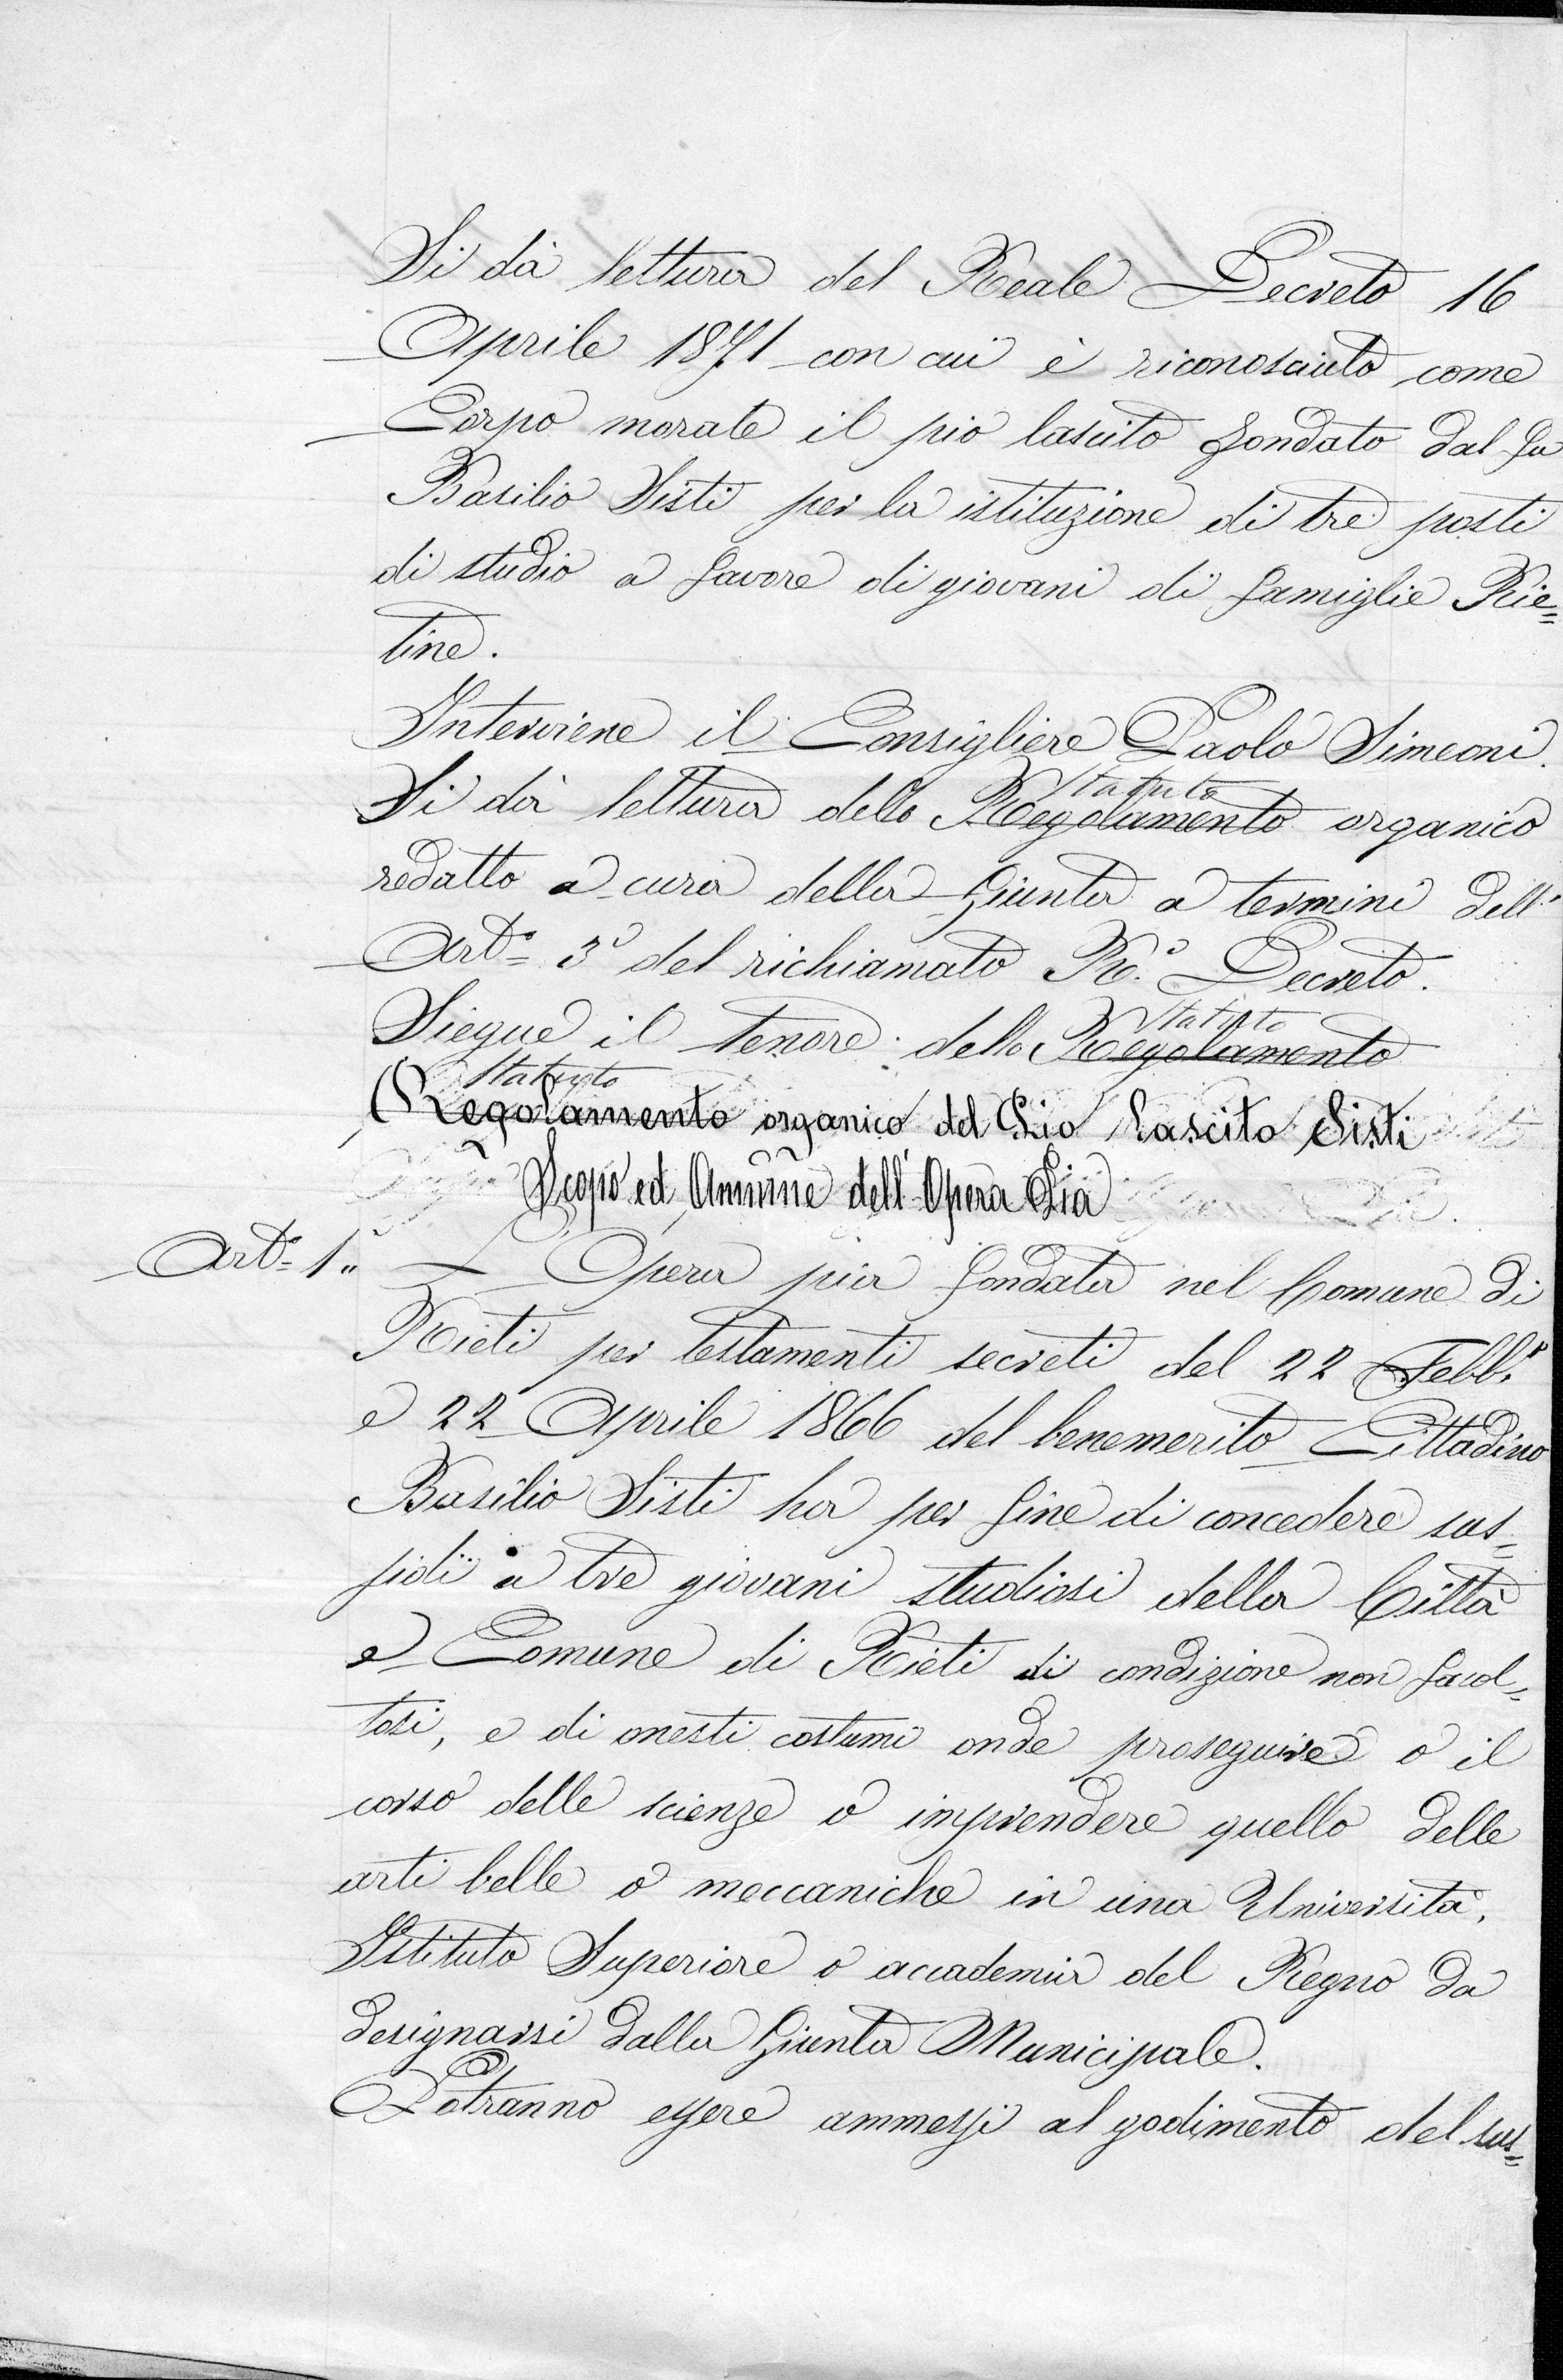 Si dà lettura del Reale Decreto 16
Aprile 1871 con cui è riconosciuto come
Corpo morale il pio lascito fondato dal fu
Basilio Sisti per la istituzione di tre posti
di studio a favore di giovani di famiglie Rie=
tine.
Interviene il Consigliere Paolo Simeoni.
Statuto
Si dà lettura dello Regolamento organico
redatto a cura della Giunta a termini dell'
Art.º 3º del richiamato R.º Decreto.
Statuto
Siegue il tenore dello Regolamento
Statuto
Regolamento organico del Pio Lascito Sisti
Scopo ed Ammne dell'Opera Pia
Art.º 1º L'Opera pia fondata nel Comune di
Rieti per testamenti secreti del 22 Febb.º
e 22 Aprile 1866 del benemerito Cittadino
Basilio Sisti ha per fine di concedere sus=
sidi a tre giovani studiosi della Città
e Comune di Rieti di condizione non facol=
tosi, e di onesti costumi onde proseguire o il
corso delle scienze o imprendere quello delle
arti belle o meccaniche in una Università,
Istituto Superiore o accademia del Regno da
designarsi dalla Giunta Municipale.
Potranno essere ammessi al godimento del sus=